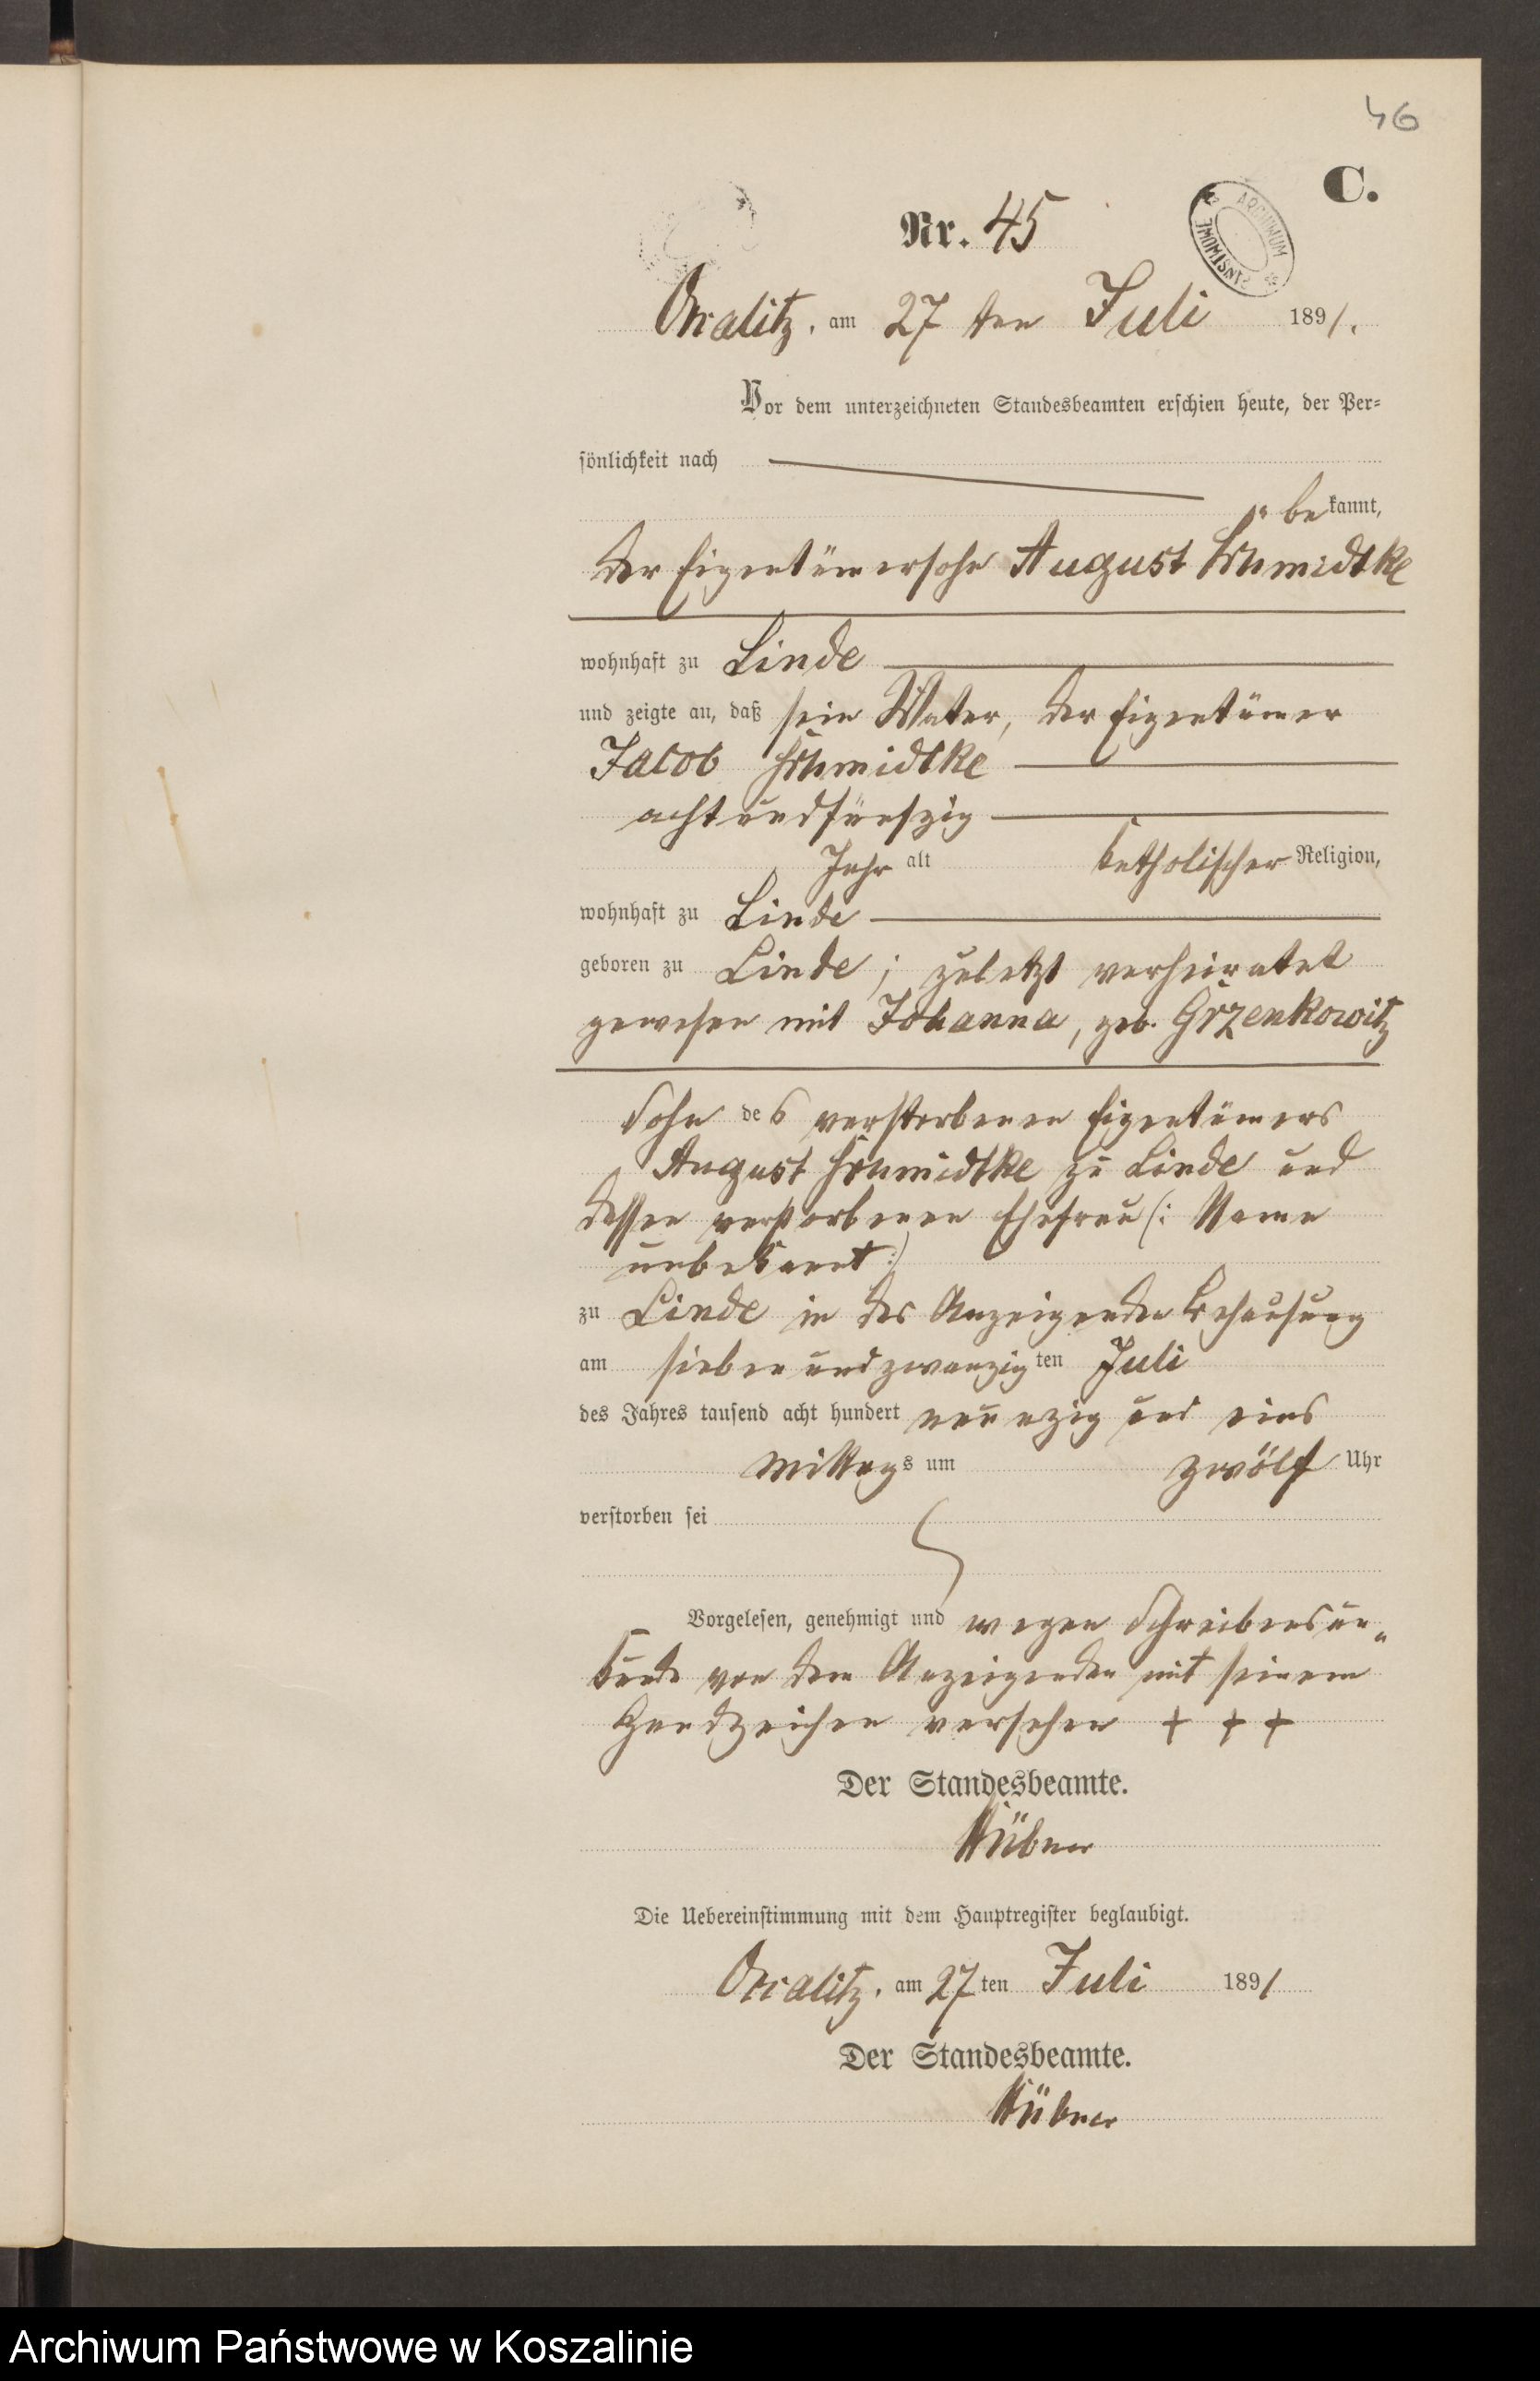 46
C.
ARCHIWUM PAŃSTWOWE
Nr. 45
am 27 ten Juli 1891.
Vor dem unterzeichneten Standesbeamten erschien heute, der Per-
sönlichkeit nach
bekannt,
der Eigentümersohn August Schmidtke
wohnhaft zu Linde
und zeigte an, daß sein Vater, der Eigentümer
Jacob Schmidtke
achtundfünfzig
Jahr alt katholischer Religion,
wohnhaft zu Linde
geboren zu Linde; zuletzt verheiratet
gewesen mit Johanna, geb. Grzenkowitz
Sohn des verstorbenen Eigentümers
August Schmidtke zu Linde und
dessen verstorbenen Ehefrau (: Name
unbekannt :)
zu Linde in des Anzeigenden Behausung
am siebenundzwanzigten Juli
des Jahres tausend acht hundert neunzig und eins
Mittags um zwölf Uhr
verstorben sei
Vorgelesen, genehmigt und wegen Schreibensun-
kunde von dem Anzeigenden mit seinem
Handzeichen versehen + + +
Der Standesbeamte.
Hübner
Die Uebereinstimmung mit dem Hauptregister beglaubigt.
am 27ten Juli 1891
Der Standesbeamte.
Hübner
Archiwum Państwowe w Koszalinie